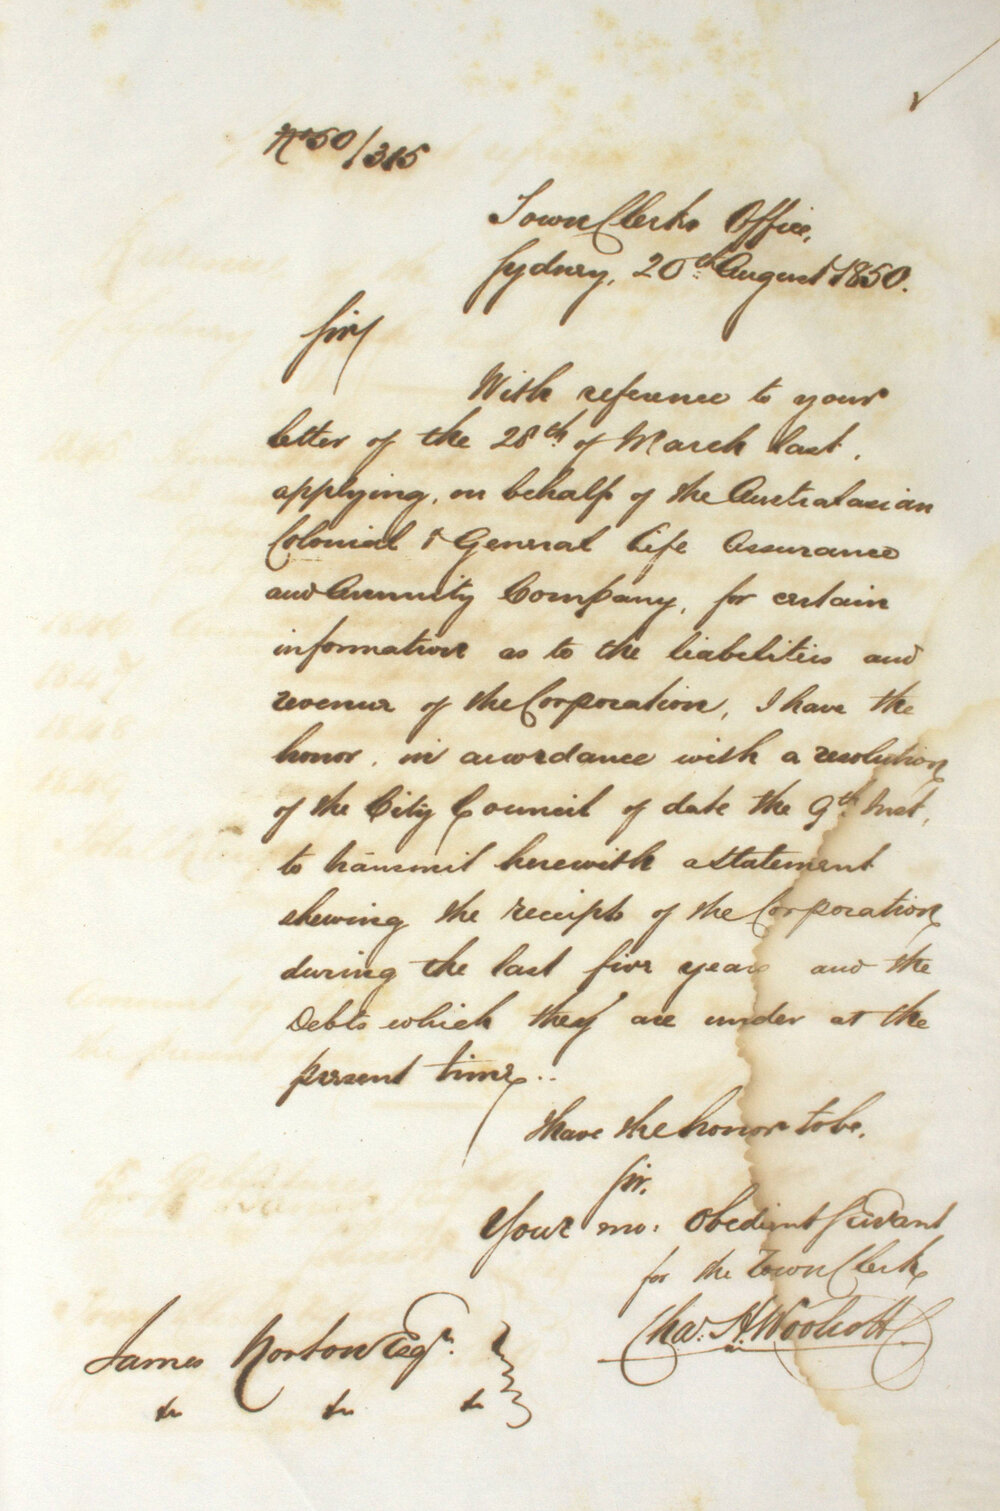 No 50/315
Town Clerks Office,
Sydney, 20th August 1850.
Sir,
With reference to your
letter of the 28th of March last,
applying, on behalf of the Australasian
Colonial & General Life Assurance
and Annuity Company, for certain
information as to the liabilities and
revenue of the Corporation, I have the
honor, in accordance with a resolution
of the City Council of date the 9th Inst,
to transmit herewith a statement
shewing the receipts of the Corporation
during the last five years and the
Debts which they are under at the
present time..
I have the honor to be,
Sir,
Your mo: Obedient Servant
for the Town Clerk
Chas. H. Woolcott
James Norton Esqr.
&c &c &c